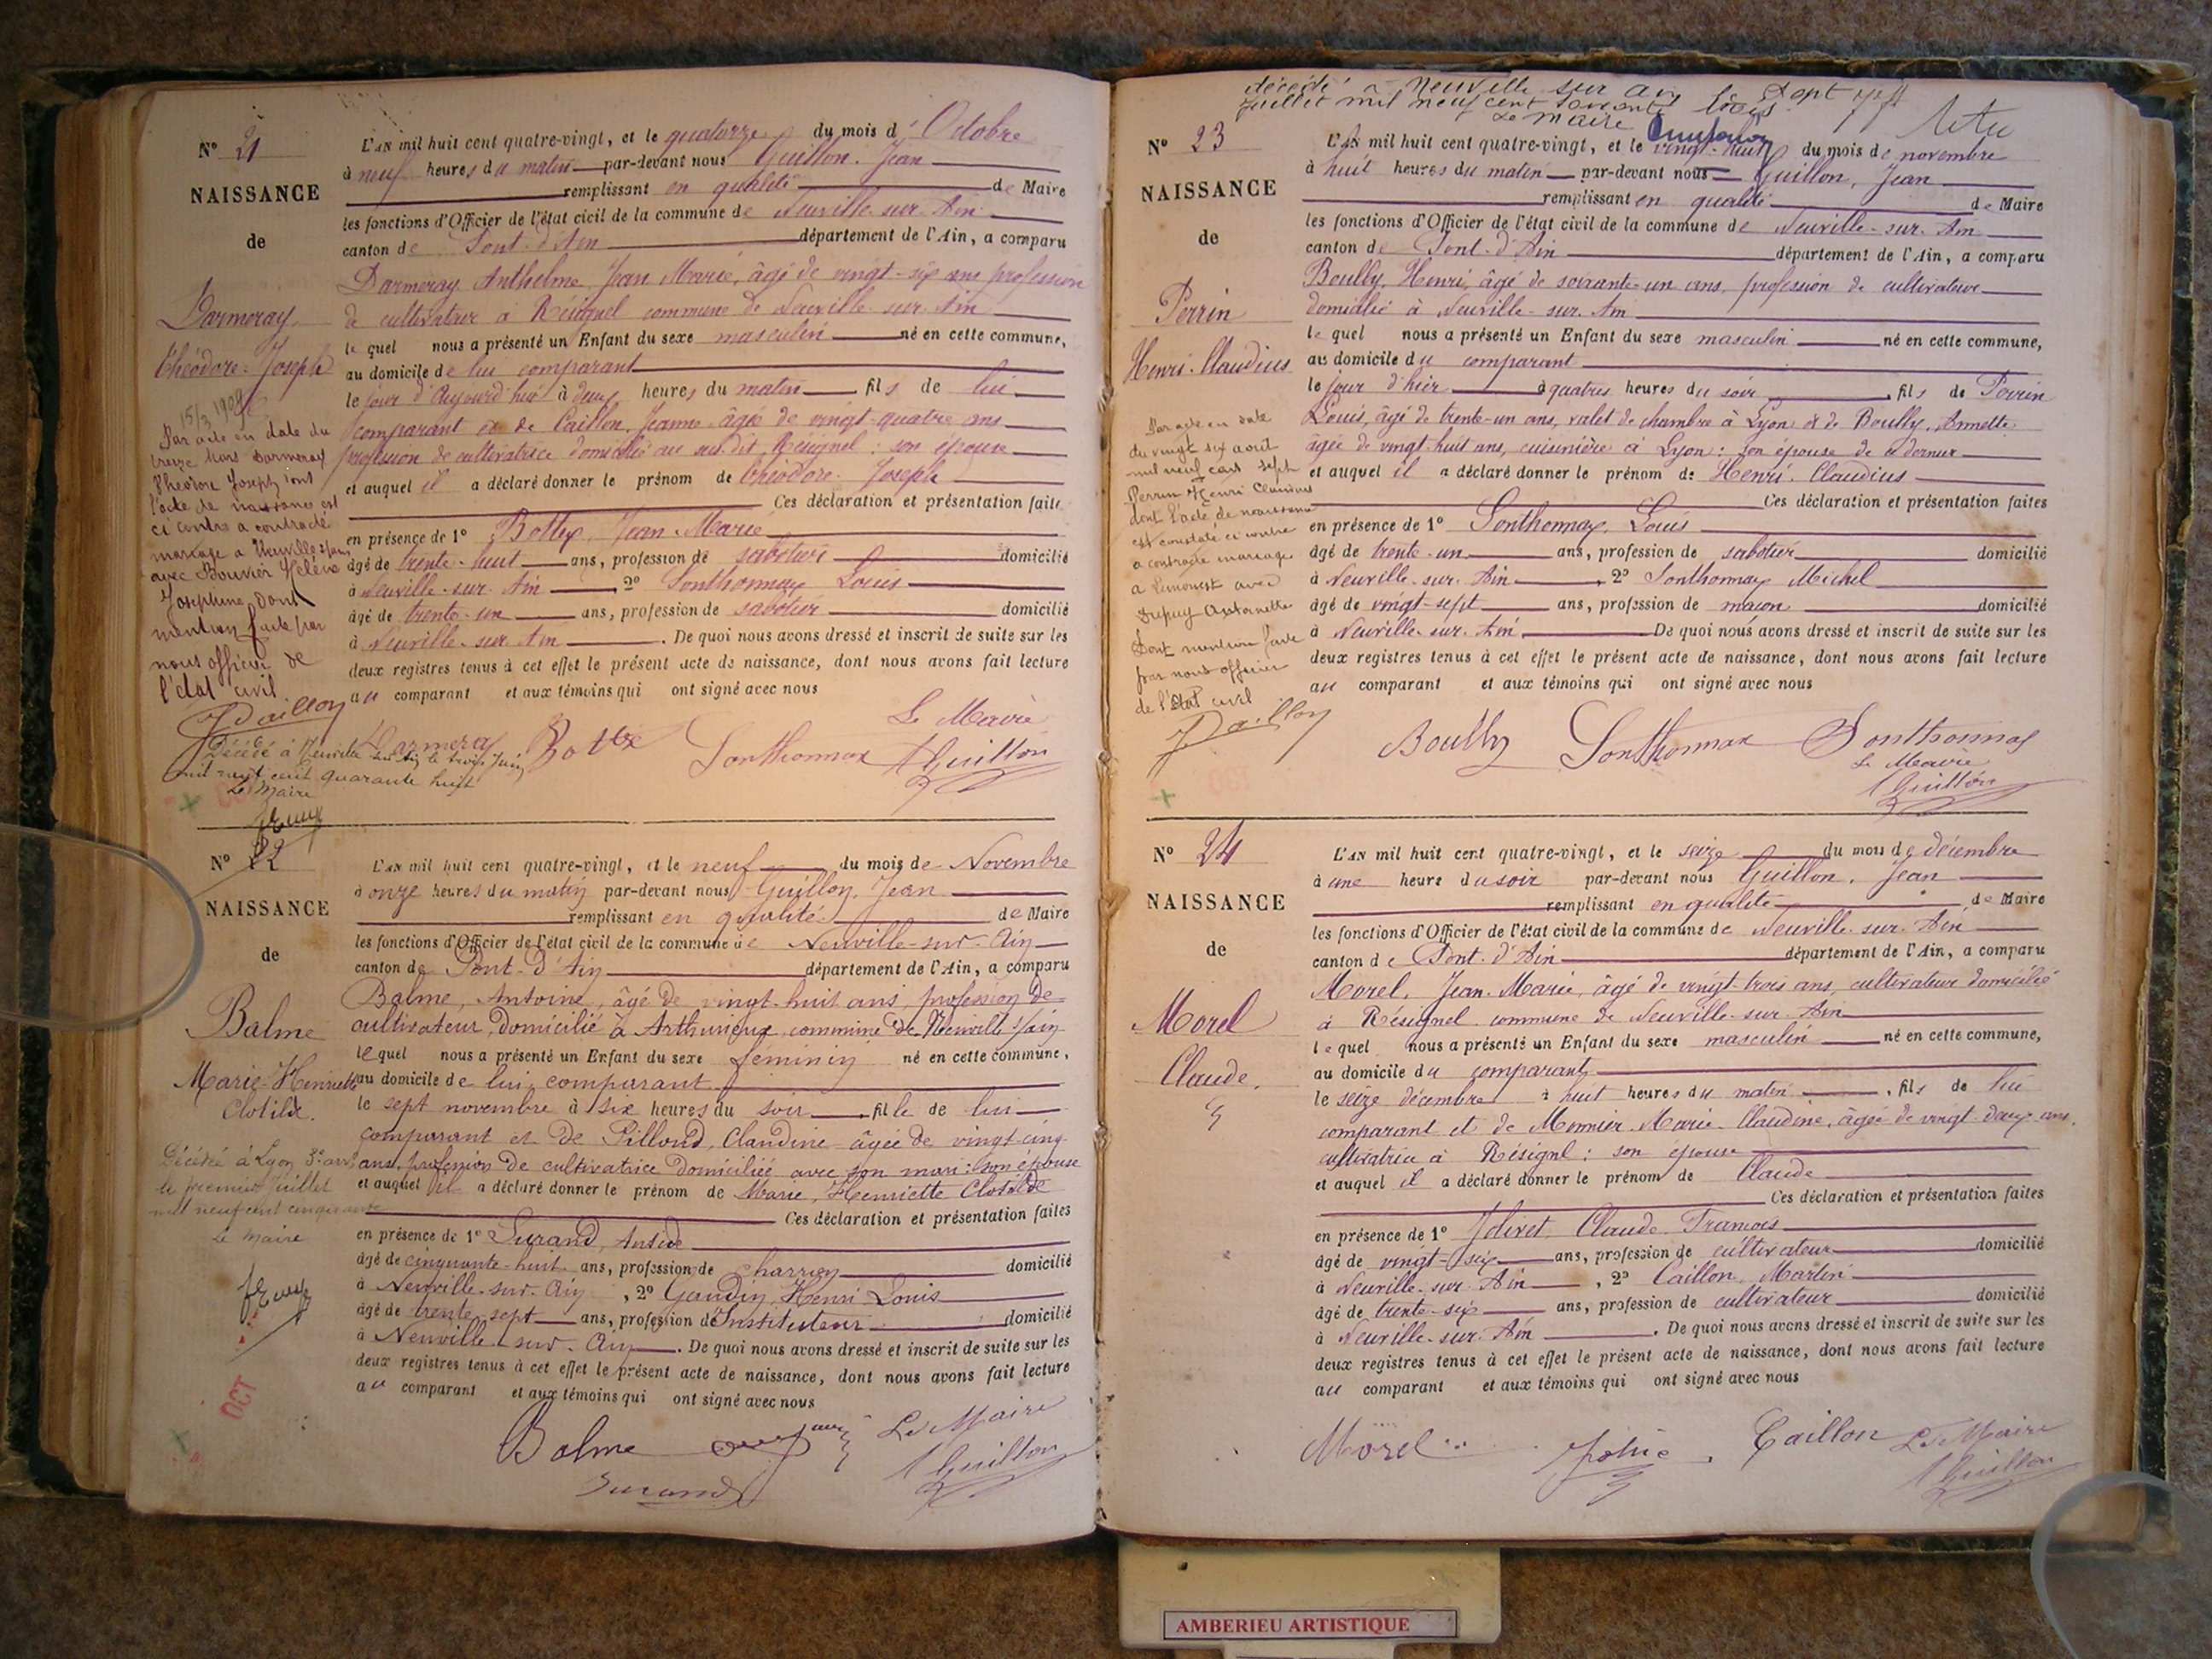 N° 21
NAISSANCE
de
Darmeray
Théodore-Joseph
15/3 1909
Par acte en date du
treize Mars Darmeray
Théodore Joseph dont
l'acte de naissance est
ci contre a contracté
mariage à Neuville s/ain
avec Bouvier Hélène
Josephine Dont
mention faite par
nous officier de
l'état civil
Décédé à Neuville sur Ain le trois Juin
mil neuf cent quarante huit
Le Maire
L'AN mil huit cent quatre-vingt, et le quatorze du mois d'Octobre
à neuf heures du matin par-devant nous Guillon. Jean
remplissant en qualité de Maire
les fonctions d'Officier de l'état civil de la commune de Neuville-sur-Ain
canton de Pont-d'Ain département de l'Ain, a comparu
Darmeray Anthelme Jean Marie, âgé de vingt-six ans profession
de cultivateur à Résignel commune de Neuville-sur-Ain
le quel nous a présenté un Enfant du sexe masculin né en cette commune,
au domicile de lui comparant
le jour d'aujourd'hui à deux heures du matin fils de lui
comparant et de Caillon, Jeanne âgée de vingt-quatre ans
profession de cultivatrice domiciliée au susdit Résignel : son épouse
et auquel il a déclaré donner le prénom de Théodore-Joseph
Ces déclaration et présentation faites
en présence de 1° Jean-Marie
âgé de trente-huit ans, profession de sabotier domicilié
à Neuville-sur-Ain, 2° Sonthonnax Louis
âgé de trente-un ans, profession de sabotier domicilié
à Neuville-sur-Ain. De quoi nous avons dressé et inscrit de suite sur les
deux registres tenus à cet effet le présent acte de naissance, dont nous avons fait lecture
au comparant et aux témoins qui ont signé avec nous
Le Maire
Darmeray Sonthonnax Guillon
N° 22
NAISSANCE
de
Balme
Marie-Henriette
Clotilde.
Décédée à Lyon 3e arr
le premier Juillet
mil neuf cent cinquante
Le Maire
OCT
L'AN mil huit cent quatre-vingt, et le neuf du mois de Novembre
à onze heures du matin par-devant nous Guillon, Jean
remplissant en qualité de Maire
les fonctions d'Officier de l'état civil de la commune de Neuville-sur-Ain
canton de Pont-d'Ain département de l'Ain, a comparu
Balme, Antoine, âgé de vingt-huit ans, profession de
cultivateur, domicilié à Arthurieux, commune de Neuville s/ain
lequel nous a présenté un Enfant du sexe féminin né en cette commune,
au domicile de lui comparant
le sept novembre à six heures du soir fille de lui
comparant et de Pilloud, Claudine âgée de vingt-cinq
ans, profession de cultivatrice domiciliée avec son mari : son épouse
et auquel il a déclaré donner le prénom de Marie, Henriette Clotilde
Ces déclaration et présentation faites
en présence de 1° Durand,
âgé de cinquante-huit ans, profession de charron domicilié
à Neuville-sur-Ain, 2° Gaudin, Henri Louis
âgé de trente-sept ans, profession d'Instituteur domicilié
à Neuville-sur-Ain. De quoi nous avons dressé et inscrit de suite sur les
deux registres tenus à cet effet le présent acte de naissance, dont nous avons fait lecture
au comparant et aux témoins qui ont signé avec nous
Balme Le Maire
Durand Guillon
décédé à Neuville sur Ain
juillet mil neuf cent soixante trois
Le Maire
N° 23
NAISSANCE
de
Perrin
Henri-Claudius
Par acte en date
du vingt six août
mil neuf cent sept
Perrin Henri Claudius
dont l'acte de naissance
est constaté ci contre
a contracté mariage
a Limonest avec
Dupuy Antoinette
Dont mention faite
par nous officier
de l'état civil
L'AN mil huit cent quatre-vingt, et le vingt-huit du mois de novembre
à huit heures du matin par-devant nous Guillon, Jean
remplissant en qualité de Maire
les fonctions d'Officier de l'état civil de la commune de Neuville-sur-Ain
canton de Pont-d'Ain département de l'Ain, a comparu
Boully, Henri, âgé de soixante-un ans, profession de cultivateur
domicilié à Neuville-sur-Ain
le quel nous a présenté un Enfant du sexe masculin né en cette commune,
au domicile du comparant
le jour d'hier à quatre heures du soir, fils de Perrin
Louis, âgé de trente-un ans, valet de chambre à Lyon et de Boully, Annette
âgée de vingt-huit ans, cuisinière à Lyon : son épouse de ce dernier
et auquel il a déclaré donner le prénom de Henri-Claudius
Ces déclaration et présentation faites
en présence de 1° Sonthonnax, Louis
âgé de trente-un ans, profession de sabotier domicilié
à Neuville-sur-Ain, 2° Sonthonnax Michel
âgé de vingt-sept ans, profession de maçon domicilié
à Neuville-sur-Ain De quoi nous avons dressé et inscrit de suite sur les
deux registres tenus à cet effet le présent acte de naissance, dont nous avons fait lecture
au comparant et aux témoins qui ont signé avec nous
Boully Sonthonnax Sonthonnax
Le Maire
Guillon
N° 24
NAISSANCE
de
Morel
Claude.
L'AN mil huit cent quatre-vingt, et le seize du mois de décembre
à une heure du soir par-devant nous Guillon, Jean
remplissant en qualité de Maire
les fonctions d'Officier de l'état civil de la commune de Neuville-sur-Ain
canton de Pont-d'Ain département de l'Ain, a comparu
Morel, Jean-Marie, âgé de vingt-trois ans, cultivateur domicilié
à Résignel commune de Neuville-sur-Ain
lequel nous a présenté un Enfant du sexe masculin né en cette commune,
au domicile du comparant
le seize décembre à huit heures du matin, fils de lui
comparant et de Monnier Marie-Claudine, âgée de vingt-deux ans,
cultivatrice à Résignl : son épouse
et auquel il a déclaré donner le prénom de Claude
Ces déclaration et présentation faites
en présence de 1° Jolivet Claude François
âgé de vingt-six ans, profession de cultivateur domicilié
à Neuville-sur-Ain, 2° Caillon, Martin
âgé de trente-six ans, profession de cultivateur domicilié
à Neuville-sur-Ain. De quoi nous avons dressé et inscrit de suite sur les
deux registres tenus à cet effet le présent acte de naissance, dont nous avons fait lecture
au comparant et aux témoins qui ont signé avec nous
Morel Caillon Le Maire
Guillon
AMBERIEU ARTISTIQUE